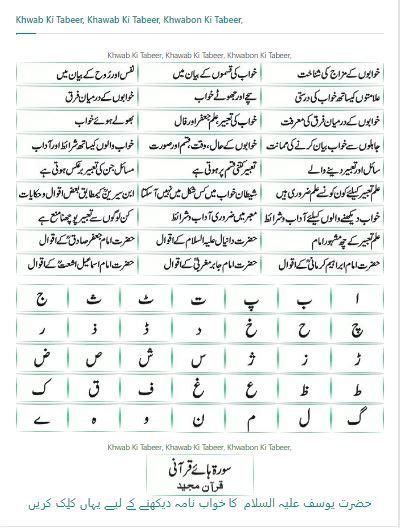 Khwab Ki Tabeer, Khawab Ki Tabeer, Khwabon Ki Tabeer,
Khwab Ki Tabeer, Khawab Ki Tabeer, Khwabon Ki Tabeer,
خوابوں کے مزاج کی شناخت خواب کی قسموں کے بیان میں نفس اور رُوح کے بیان میں
علامتوں کیساتھ خواب کی درستی سچے اور جھوٹے خواب خوابوں کے درمیان فرق
خوابوں کے درمیان فرق کی معرفت خواب کی تعبیر علم جعفر اور فال بھولے ہوئے خواب
جاہلوں سے خواب بیان کرنے کی ممانت خوابوں کے حال، وقت، قسم اور صورت خواب والوں کیساتھ شرائط اور آداب
سائل اور تعبیر دینے والے تعبیر کتنی قسم پر ہوتی ہے مسائل جن کی تعبیر برعکس ہوتی ہے
علم تعبیر کیلئے کون کونسے علم ضروری ہیں شیطان خواب میں کس شکل میں نہیں آ سکتا ابن سیرینؒ کیمطابق بعض اقوال و حکایات
خواب دیکھنے والوں کیلئے آداب و شرائط معبر میں ضروری آداب و شرائط کن لوگوں سے تعبیر پوچھنا منع ہے
علم تعبیر کے چھ مشہور امام حضرت دانیال علیہ السلام کے اقوال حضرت امام جعفر صادقؒ کے اقوال
حضرت امام ابراہیم کرمانیؒ کے اقوال حضرت امام جابر مغربیؒ کے اقوال حضرت امام اسماعیل اشعثؒ کے اقوال
ا ب پ ت ٹ ث ج
چ ح خ د ڈ ذ ر
ڑ ز ژ س ش ص ض
ط ظ ع غ ف ق ک
گ ل م ن و ہ ے
Khwab Ki Tabeer, Khawab Ki Tabeer, Khwabon Ki Tabeer,
سورۃ ہائے قرآنی
قرآن مجید
حضرت یوسف علیہ السلام کا خواب نامہ دیکھنے کے لیے یہاں کلِک کریں